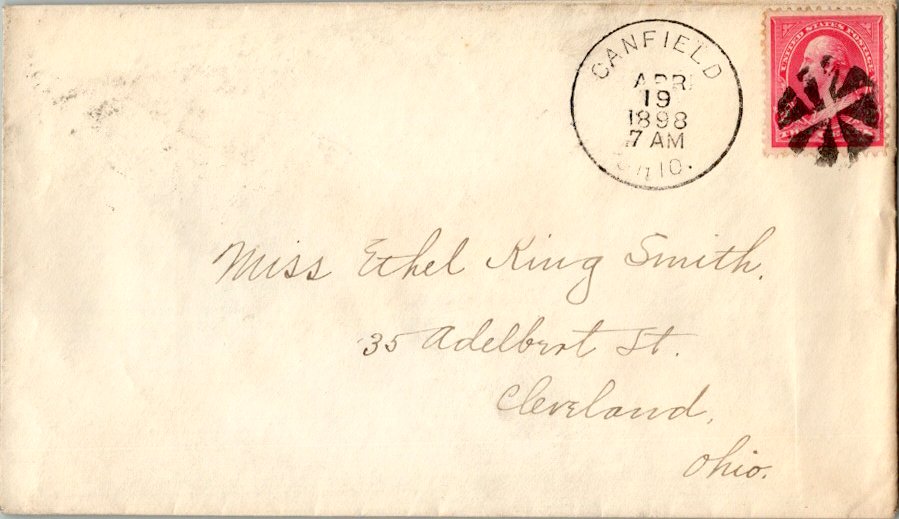 CANFIELD
APR
19
1898
7 AM
OHIO.
UNITED STATES POSTAGE
Miss Ethel King Smith.
35 Adelbert St.
Cleveland,
Ohio.